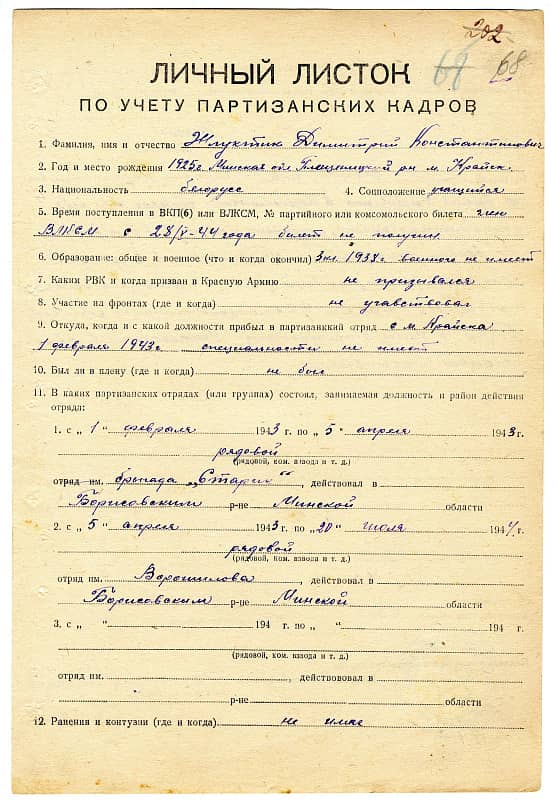 202
68 68
ЛИЧНЫЙ ЛИСТОК
ПО УЧЕТУ ПАРТИЗАНСКИХ КАДРОВ
1. Фамилия, имя и отчество Жлуктик Димитрий Константинович
2. Год и место рождения 1925г. Минская обл. Плещеницкий рн м. Крайск
3. Национальность белорусс 4. Соцположение учащийся
5. Время поступления в ВКП(б) или ВЛКСМ, № партийного или комсомольского билета член
ВЛКСМ с 28/V-44 года билет не получил
6. Образование: общее и военное (что и когда окончил) 1937г. военного не имеет
7. Каким РВК и когда призван в Красную Армию не призывался
8. Участие на фронтах (где и когда) не учавствовал
9. Откуда, когда и с какой должности прибыл в партизанский отряд с м. Крайска
1 февраля 1943г. специальности не имеет
10. Был ли в плену (где и когда) не был
11. В каких партизанских отрядах (или группах) состоял, занимаемая должность и район действия
отряда:
1. с „ 1 “ февраля 1943 г. по „ 5 “ апреля 1943 г.
рядовой
(рядовой, ком. взвода и т. д.)
отряд им. бригада „Старик“, действовал в
Борисовским р-не Минской области
2. с „ 5 “ апреля 1943 г. по „20“ июля 1944 г.
рядовой
(рядовой, ком. взвода и т. д.)
отряд им. Ворошилова, действовал в
Борисовским р-не Минской области
3. с „ “ 194 г. по „ “ 194 г.
(рядовой, ком. взвода и т. д.)
отряд им. , действововал в
р-не области
12. Ранения и контузии (где и когда) не имел